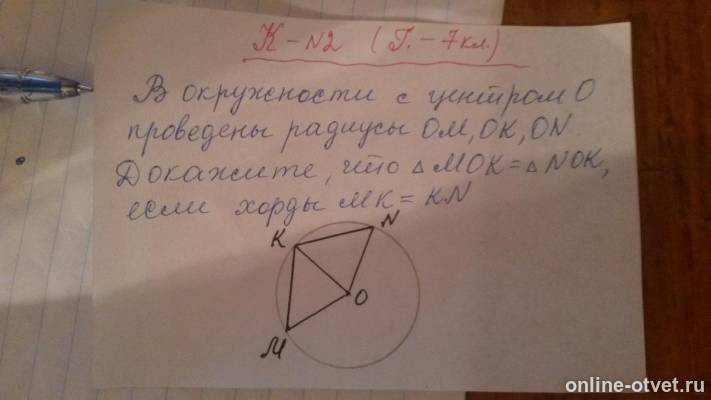 К – N2 (Г. – 7 кл.)
В окружности с центром О
проведены радиусы ОМ, ОК, ON.
Докажите, что △ MOK = △ NOK,
если хорды MK = KN
K
N
O
M
online-otvet.ru